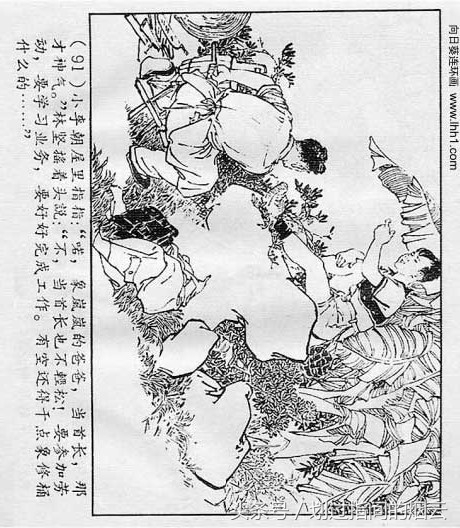 向日葵连环画 www.lhh1.com
（91）小李朝屋里指指：“喏，象岚岚的爸爸，当首长，那
才神气。”林坚摇着头说：“不，当首长也不轻松！要参加劳
动，要学习业务，要好好完成工作。有空还得干点象修桶
什么的……”
头条号 / 划过指间的烟云